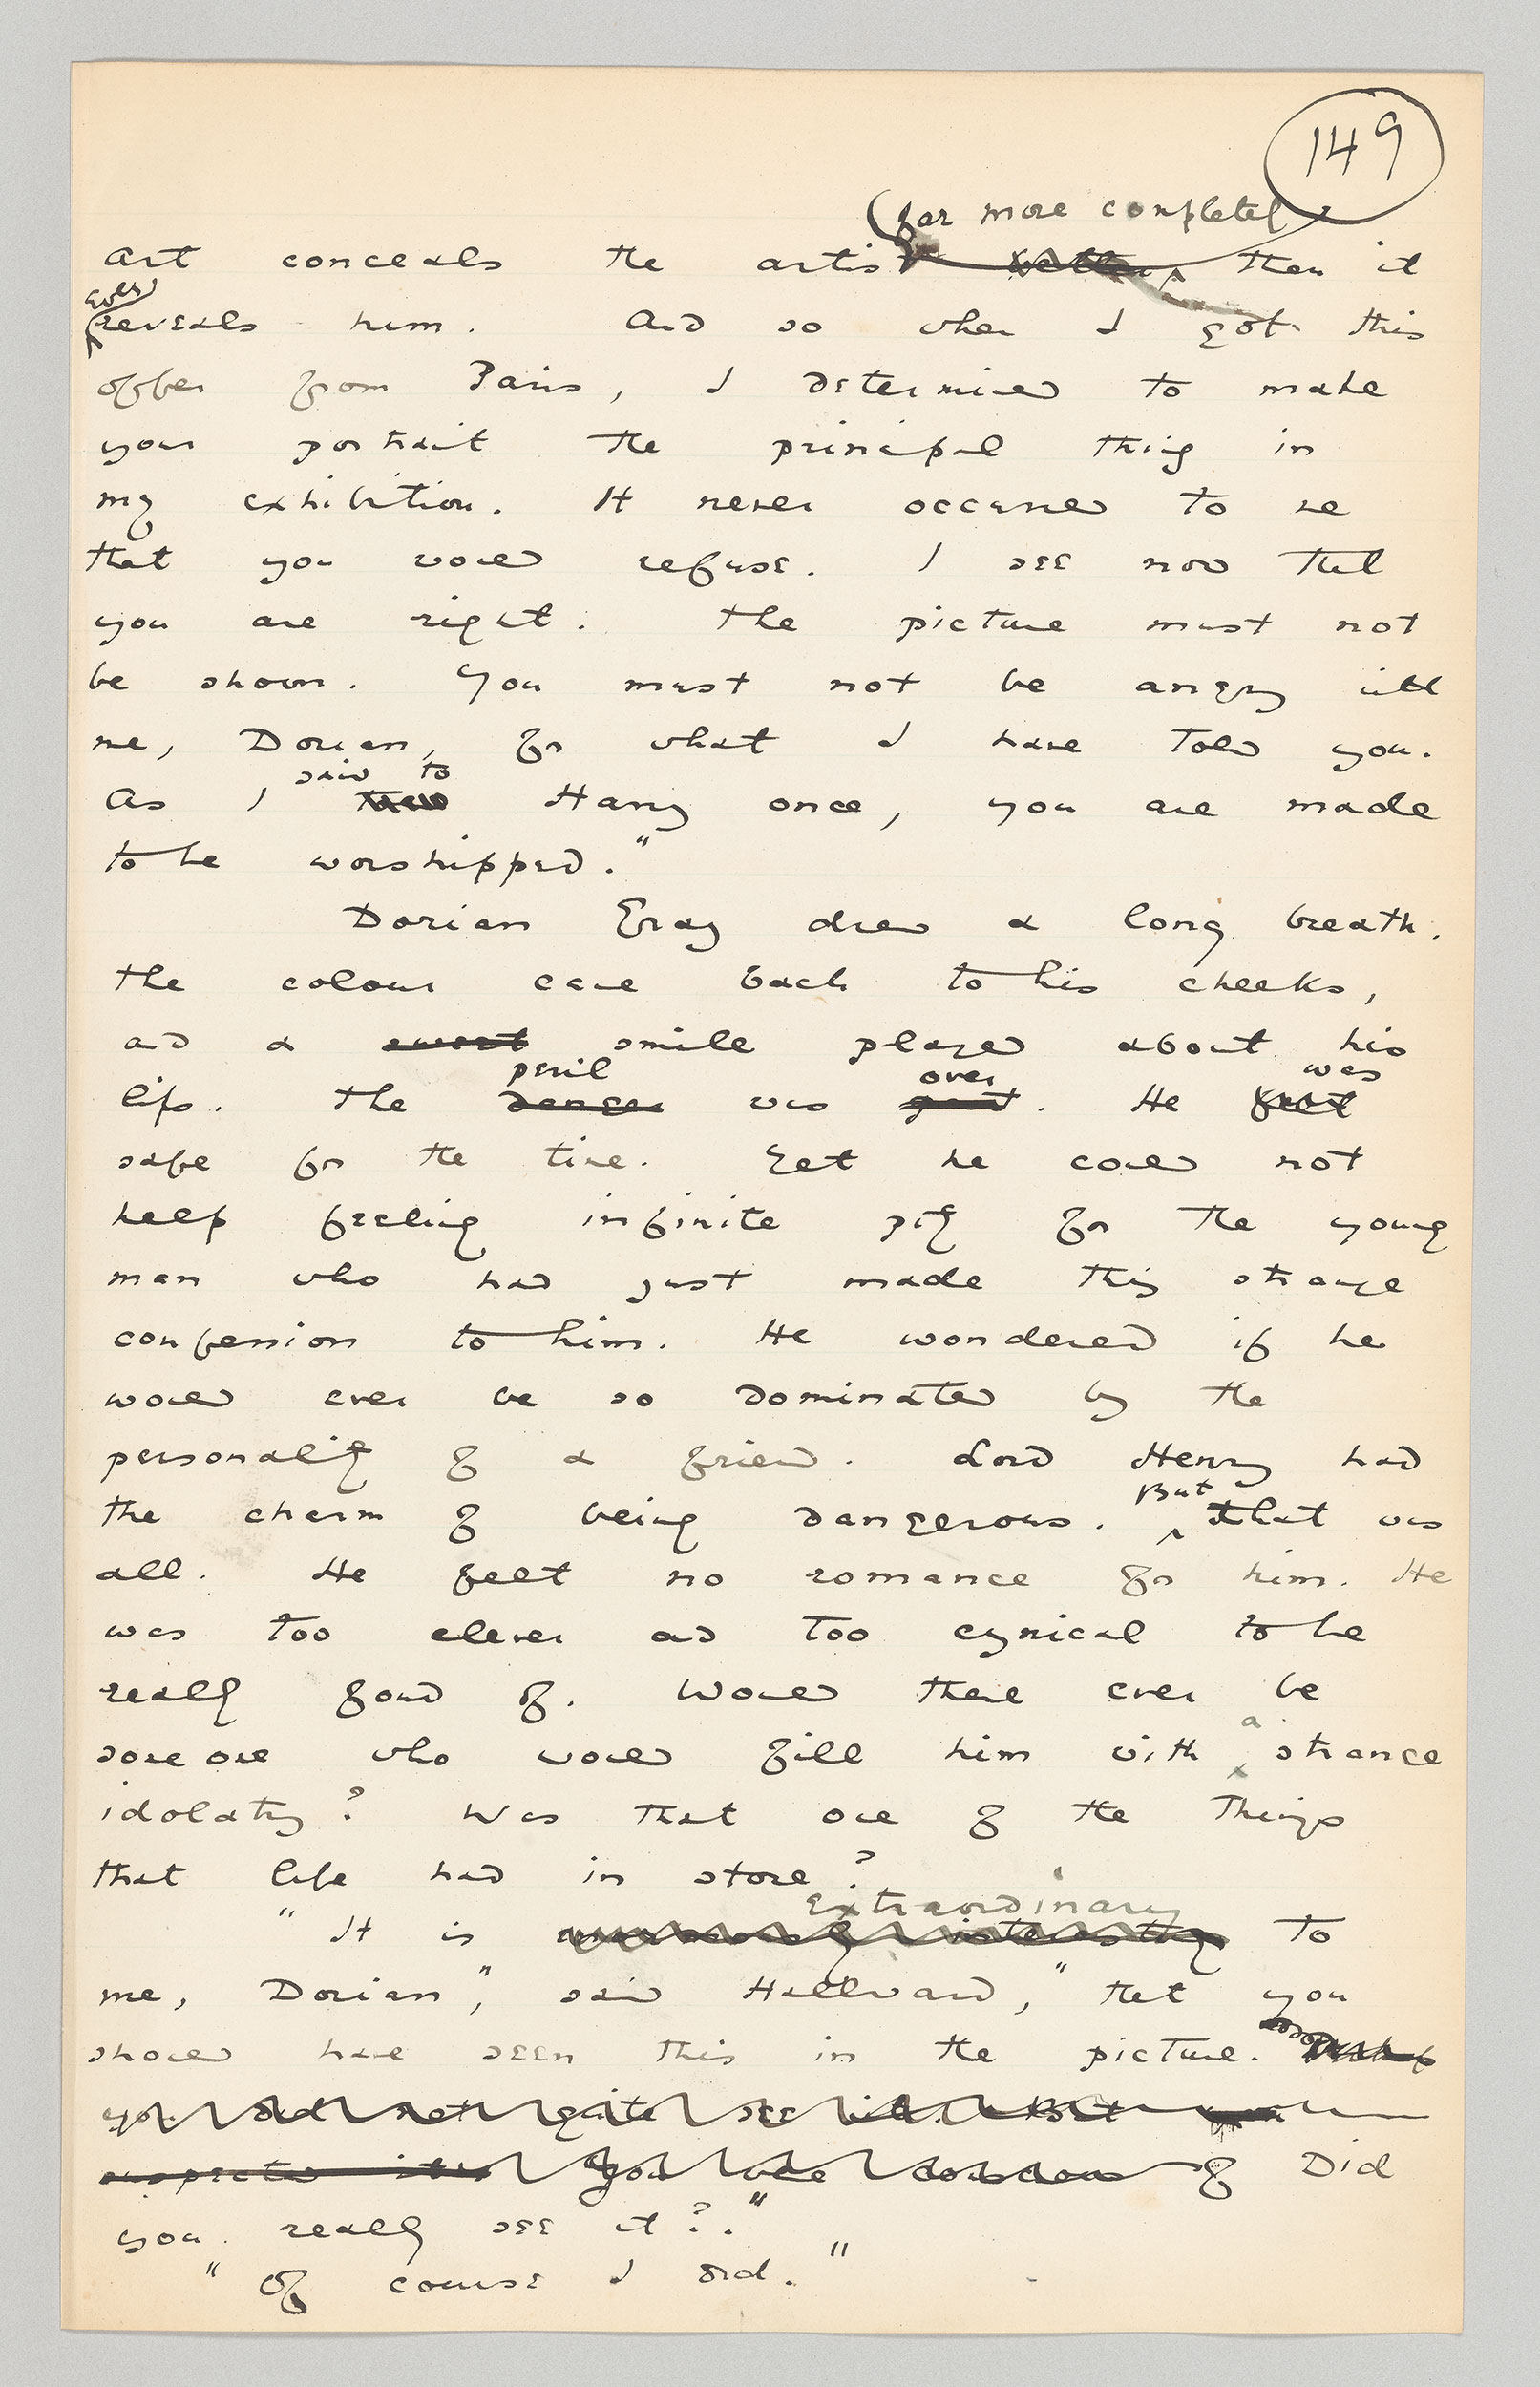 149
far more completely
Art conceals the artist better than it
ever
reveals him. And so when I got this
offer from Paris, I determined to make
your portrait the principal thing in
my exhibition. It never occurred to me
that you would refuse. I see now that
you are right. The picture must not
be shown. You must not be angry with
me, Dorian, for what I have told you.
said to
As I Harry once, you are made
to be worshipped."
Dorian Gray drew a long breath.
The colour came back to his cheeks,
and a sweet smile played about his
peril over was
lips. The danger was past. He felt
safe for the time. Yet he could not
help feeling infinite pity for the young
man who had just made this strange
confession to him. He wondered if he
would ever be so dominated by the
personality of a friend. Lord Henry had
But
the charm of being dangerous. that was
all. He felt no romance for him. He
was too clever and too cynical to be
really fond of. Would there ever be
a
some one who would fill him with strange
idolatry? Was that one of the things
that life had in store?
Extraordinary
"It is interesting to
me, Dorian," said Hallward, "that you
should have seen this in the picture.
you did not quite see it. But you
suspected it. You were conscious of Did
you really see it?."
"Of course I did."